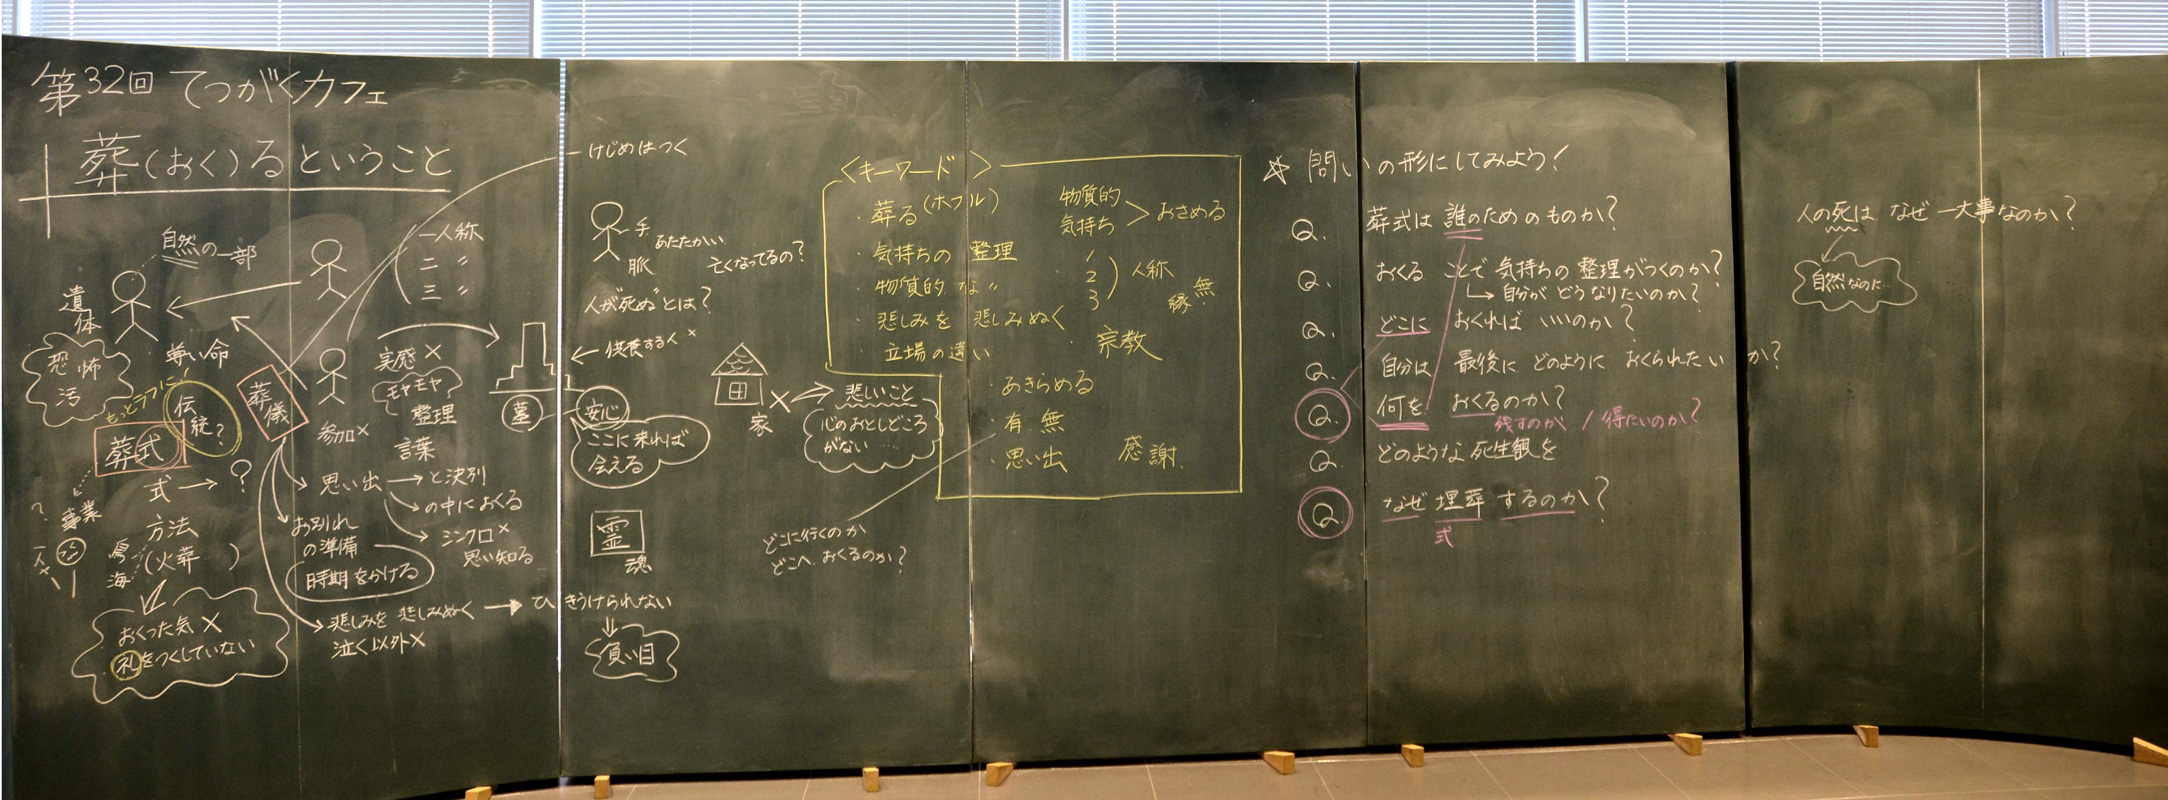 第32回 てつがくカフェ
葬(おく)るということ
自然の一部
一人称
二 〃
三 〃
遺体
恐怖
汚
尊い命
もっとラフに!
伝統?
葬式
葬儀
参加×
実感×
モヤモヤ
整理
言葉
墓
式→?
?
事業
方法
(火葬 )
鳥
海
おくった気×
礼をつくしていない
思い出→と決別
の中におくる
シンクロ×
思い知る
お別れ
の準備
時期をかける
悲しみを悲しみぬく→ひきうけられない
泣く以外×
負い目
けじめはつく
手 あたたかい
脈 亡くなってるの?
人が"死ぬ"とは?
供養するく×
安心
ここに来れば
会える
家
悲しいこと
心のおとしどころ
がない
霊
魂
どこに行くのか
どこへ おくるのか?
<キーワード>
・葬る(ホフル)
・気持ちの整理
・物質的な〃
悲しみを悲しみぬく
立場の違い
・あきらめる
・有 無
・思い出
物質的
気持ち
>おさめる
1
2
3
)人称
無縁
宗教
感謝
☆ 問いの形にしてみよう!
Q. 葬式は誰のためのものか?
Q. おくることで気持ちの整理がつくのか?
↳自分がどうなりたいのか?
Q. どこに おくれば いいのか?
Q. 自分は 最後に どのように おくられたいか?
Q. 何を おくるのか?
残すのか / 得たいのか?
Q. どのような死生観を
Q. なぜ埋葬するのか?
式
人の死は なぜ 一大事なのか?
自然なのに…